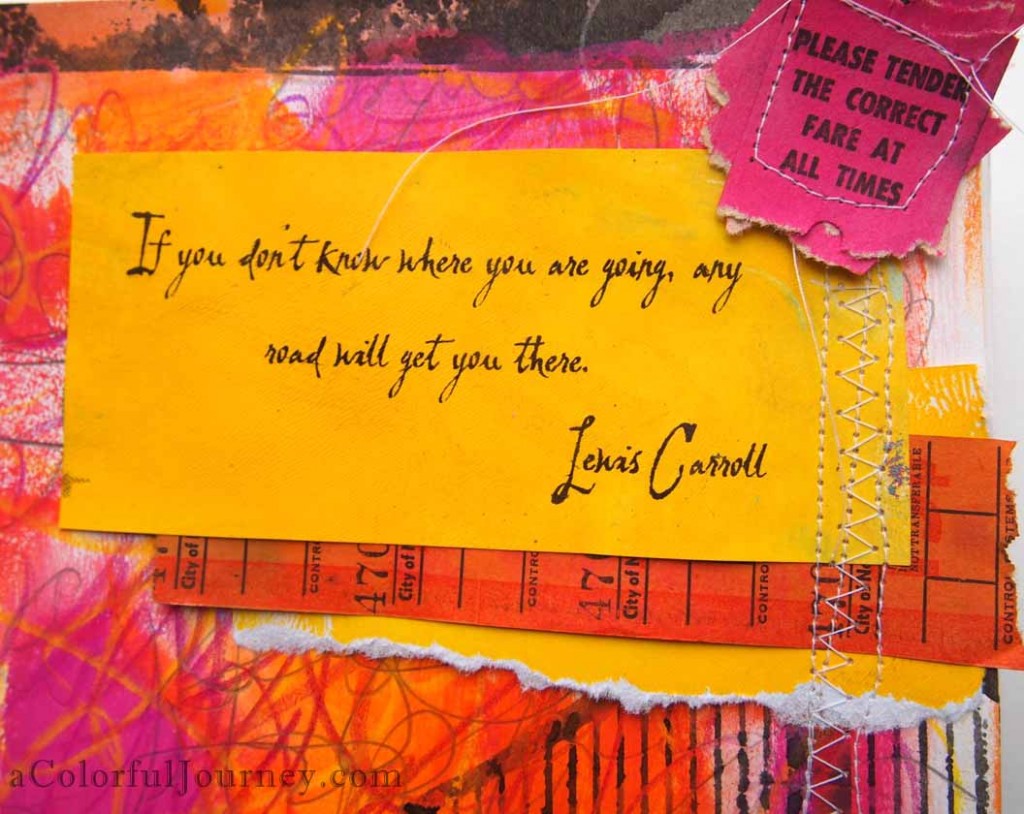 PLEASE TENDER
THE CORRECT
FARE AT
ALL TIMES
If you don't know where you are going, any
road will get you there.
Lewis Carroll
NOTTRANSFERABLE
City of
CONTRO
470
City of
CONTRO
470
City of N
CONTRO
470
City of No
CONTRO
STEMS
aColorfulJourney.com